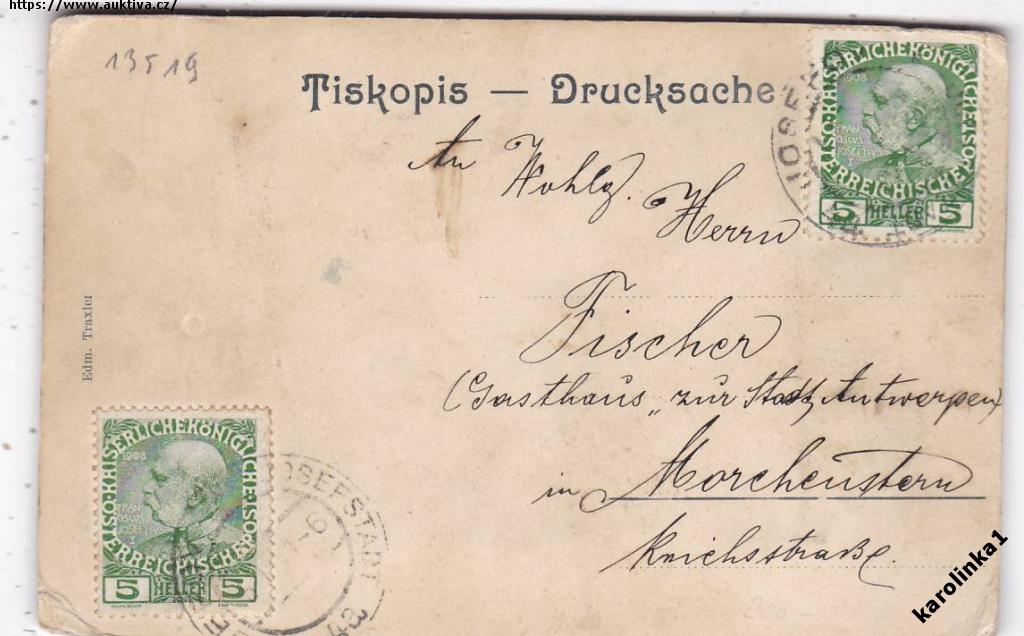 https://www.auktiva.cz/
13519
Tiskopis — Drucksache
An Wohlg.
Herrn
Fischer
(Gasthaus „zur Stadt Antwerpen)
in Morchenstern
Reichsstraße.
Edm. Traxler
KAISERLICHEKÖNIGLICHE
ÖSTERREICHISCHE
1908
FRAN
CISCVS
IOSEPHVS
I
5 HELLER 5
JOSEF
KAISERLICHEKÖNIGLICHE
ÖSTERREICHISCHE
1908
FRAN
CISCVS
IOSEPHVS
I
5 HELLER 5
JOSEFSTADT
karolinka1